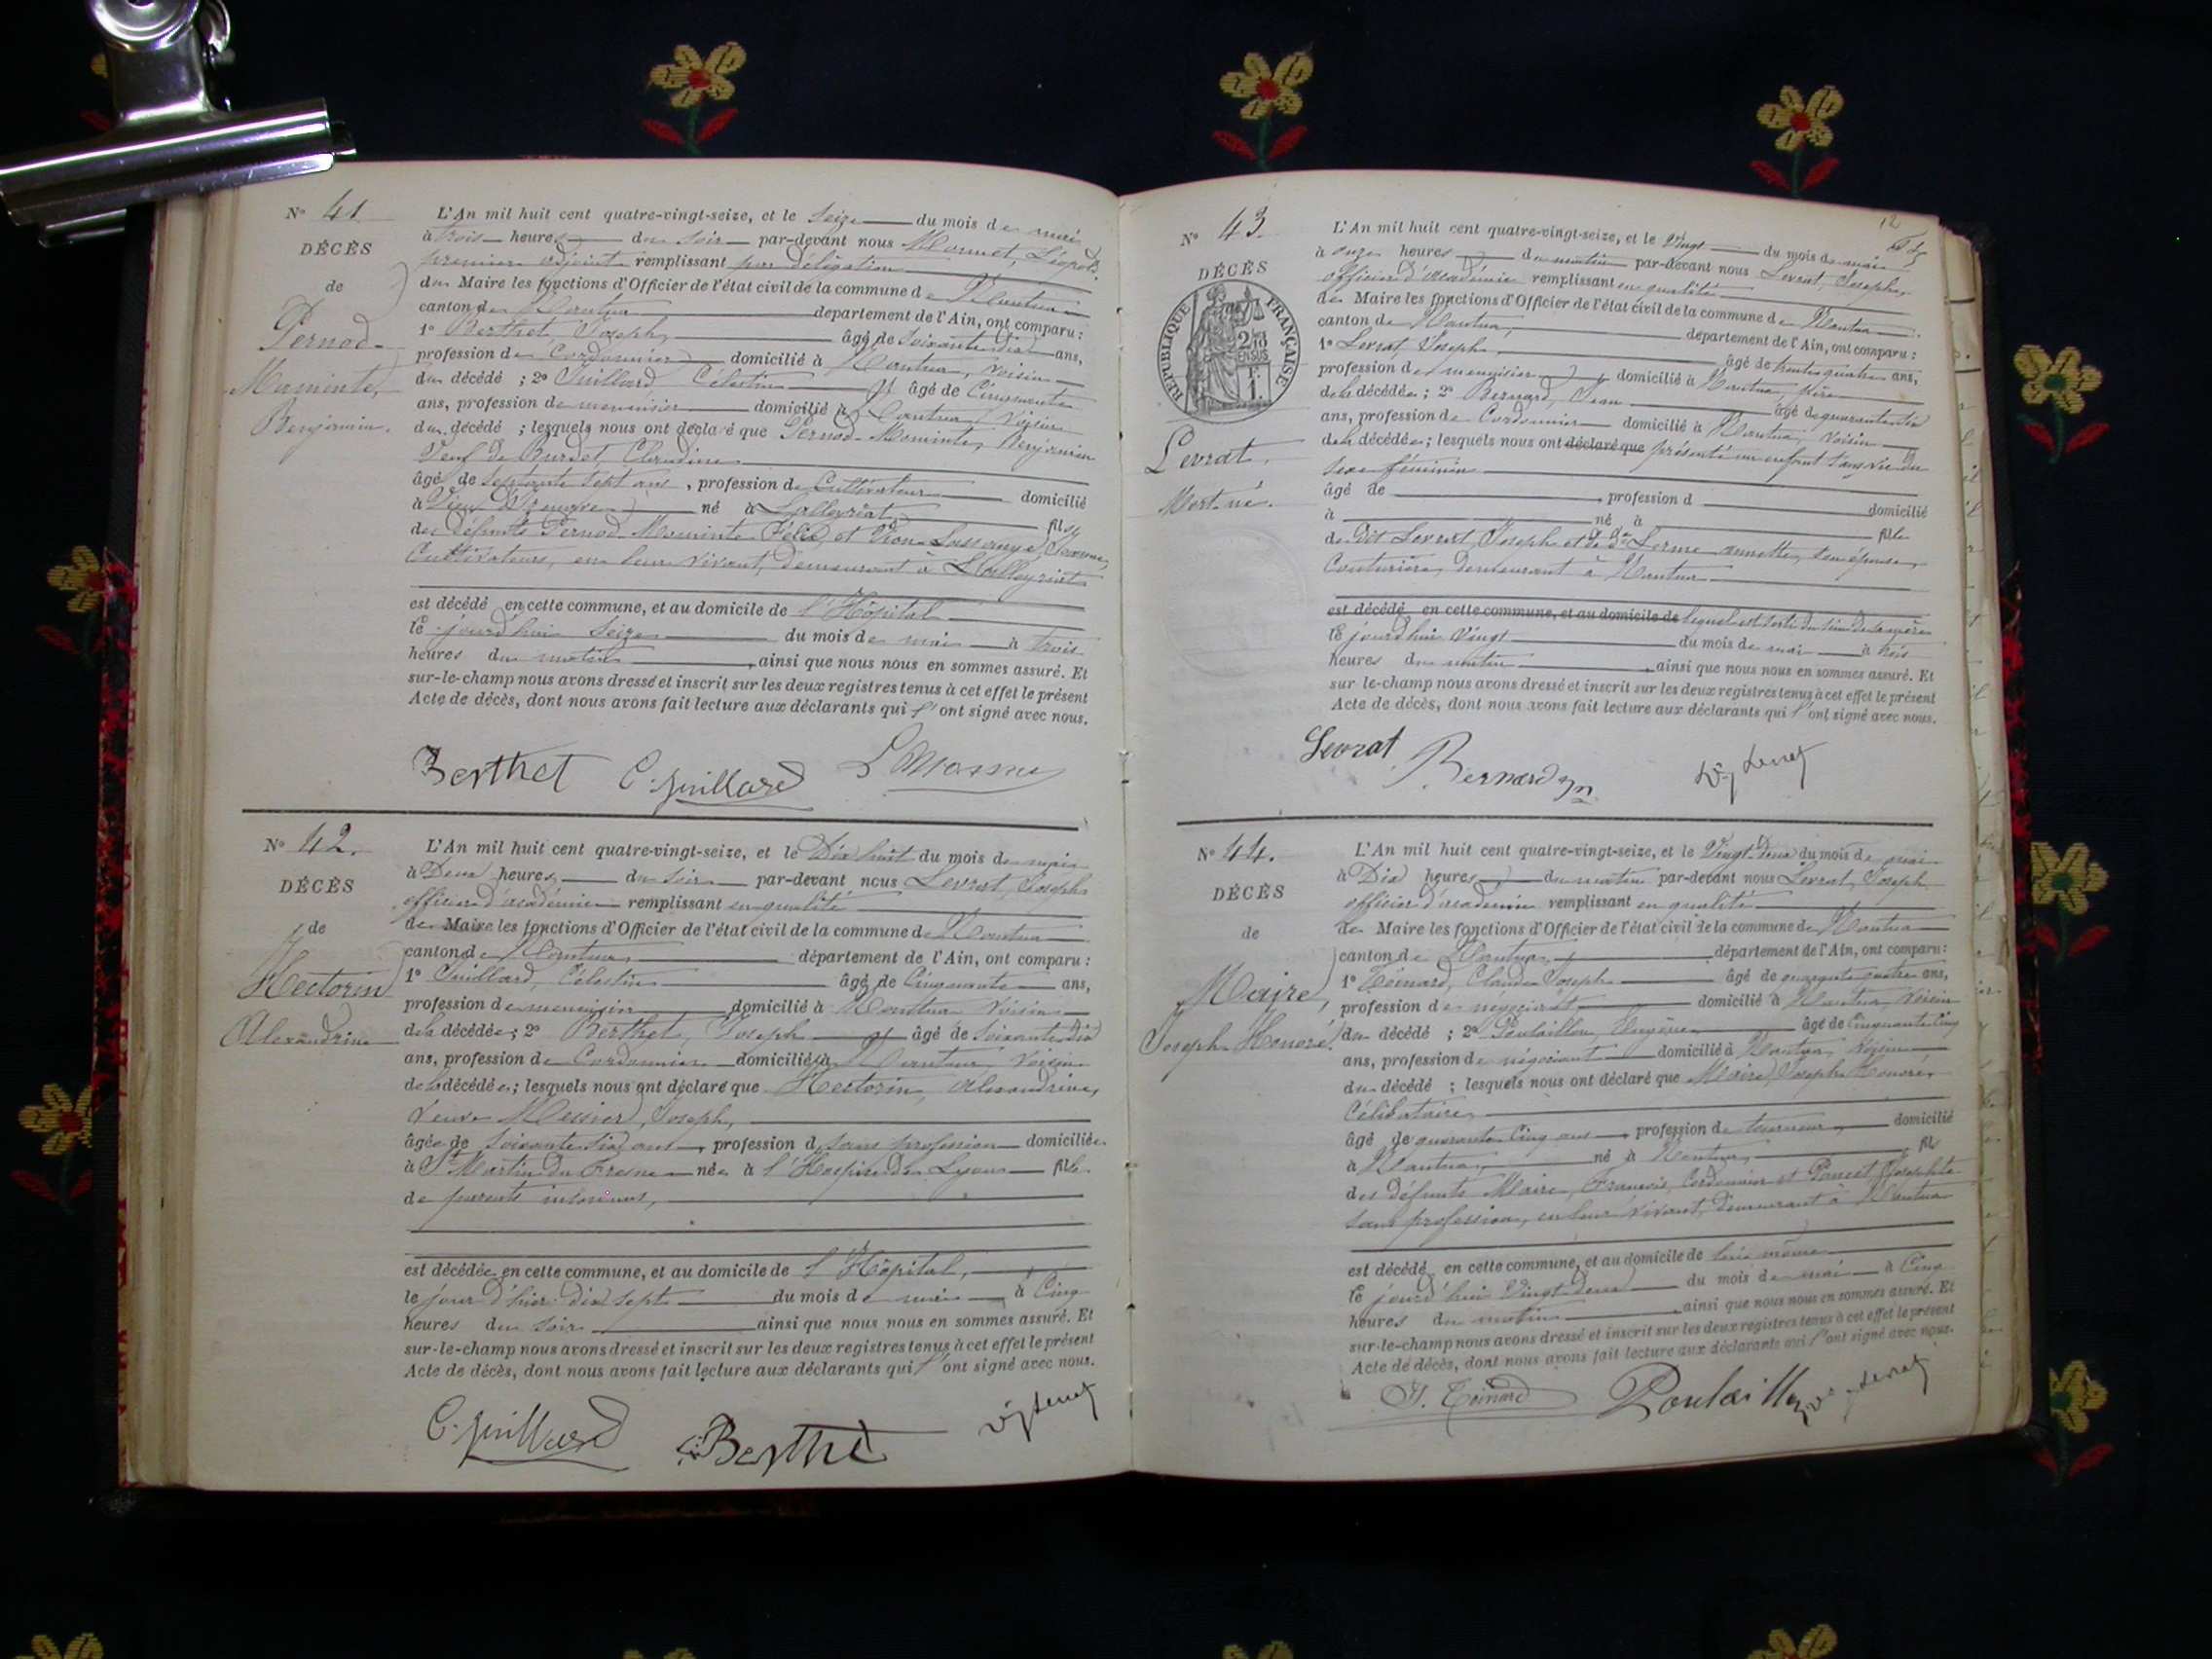 N° 41
DÉCÈS
de
Pernod-
Maminte,
Benjamin.
L'An mil huit cent quatre-vingt-seize, et le seize du mois de mai
à trois heures du soir par-devant nous Monnet, Léopold,
premier adjoint remplissant par délégation
du Maire les fonctions d'Officier de l'état civil de la commune de Nantua
canton de Nantua département de l'Ain, ont comparu :
1° Berthet, Joseph, âgé de soixante dix ans,
profession de Cordonnier domicilié à Nantua, voisin
du décédé ; 2° Juillard Célestin âgé de Cinquante
ans, profession de menuisier domicilié à Nantua, voisin
du décédé ; lesquels nous ont déclaré que Pernod-Maminte, Benjamin
Veuf de Burdet, Claudine
âgé de septante sept ans, profession de Cultivateur domicilié
à Vieu d'Izenave né à Lalleyriat fils
des défunts Pernod-Maminte Félix, et
Cultivateurs, en leur vivant, demeurant à Lalleyriat
est décédé en cette commune, et au domicile de l'Hôpital
le jourd'hui seize du mois de mai à trois
heures du matin, ainsi que nous nous en sommes assuré. Et
sur-le-champ nous avons dressé et inscrit sur les deux registres tenus à cet effet le présent
Acte de décès, dont nous avons fait lecture aux déclarants qui l'ont signé avec nous.
Berthet C. Juillard L Monnet
N° 42.
DÉCÈS
de
Hectorin
Alexandrine
L'An mil huit cent quatre-vingt-seize, et le Dix huit du mois de mai
à Deux heures du soir par-devant nous Levrat, Joseph
officier d'académie remplissant en qualité
de Maire les fonctions d'Officier de l'état civil de la commune de Nantua
canton de Nantua département de l'Ain, ont comparu :
1° Juillard, Célestin âgé de Cinquante ans,
profession de menuisier domicilié à Nantua voisin
de la décédée ; 2° Berthet, Joseph âgé de soixante dix
ans, profession de Cordonnier domicilié à Nantua voisin
de la décédée ; lesquels nous ont déclaré que Hectorin, Alexandrine,
Veuve Messier, Joseph,
âgée de soixante six ans, profession d sans profession domiciliée
à St Martin du Fresne née à l'Hospice de Lyon fille
de parents inconnus,
est décédée en cette commune, et au domicile de l'Hôpital,
le jour d'hier dix sept du mois de mai à Cinq
heures du soir ainsi que nous nous en sommes assuré. Et
sur-le-champ nous avons dressé et inscrit sur les deux registres tenus à cet effet le présent
Acte de décès, dont nous avons fait lecture aux déclarants qui l'ont signé avec nous.
C. Juillard Berthet Levrat
12
N° 43.
DÉCÈS
RÉPUBLIQUE FRANÇAISE
2/10 EN SUS
1 F.
Levrat.
Mort-né.
L'An mil huit cent quatre-vingt-seize, et le Vingt du mois de mai
à onze heures du matin par-devant nous Levrat, Joseph,
officier d'académie remplissant en qualité
de Maire les fonctions d'Officier de l'état civil de la commune de Nantua
canton de Nantua, département de l'Ain, ont comparu :
1° Levrat, Joseph âgé de trente quatre ans,
profession de menuisier domicilié à Nantua, père
de la décédée ; 2° Bernard, Jean âgé de quarante
ans, profession de Cordonnier domicilié à Nantua, voisin
de la décédée ; lesquels nous ont déclaré que présenté un enfant sans vie du
sexe féminin
âgé de , profession d domicilié
à né à fille
de dit Levrat, Joseph et de Lerme annette, son épouse,
Couturière, demeurant à Nantua
est décédé en cette commune, et au domicile de lequel est sorti du sein de sa mère
le jourd'hui Vingt du mois de mai à trois
heures du matin, ainsi que nous nous en sommes assuré. Et
sur-le-champ nous avons dressé et inscrit sur les deux registres tenus à cet effet le présent
Acte de décès, dont nous avons fait lecture aux déclarants qui l'ont signé avec nous.
Levrat Bernard Levrat
N° 44.
DÉCÈS
de
Maire,
Joseph Honoré
L'An mil huit cent quatre-vingt-seize, et le Vingt-Deux du mois de mai
à Dix heures du matin par-devant nous Levrat, Joseph
officier d'académie remplissant en qualité
de Maire les fonctions d'Officier de l'état civil de la commune de Nantua
canton de Nantua, département de l'Ain, ont comparu :
1° Coinard, Claude Joseph âgé de quarante quatre ans,
profession de négociant domicilié à Nantua, voisin
du décédé ; 2° Poulaillon, Eugène âgé de Cinquante Cinq
ans, profession de négociant domicilié à Nantua, voisin
du décédé ; lesquels nous ont déclaré que Maire, Joseph Honoré,
Célibataire,
âgé de quarante Cinq ans, profession de tourneur, domicilié
à Nantua, né à Nantua, fils
des défunts Maire, François, Cordonnier et Poncet Josephte
sans profession, en leur vivant, demeurant à Nantua
est décédé en cette commune, et au domicile de lui-même
le jourd'hui Vingt-deux du mois de mai à Cinq
heures du matin ainsi que nous nous en sommes assuré. Et
sur-le-champ nous avons dressé et inscrit sur les deux registres tenus à cet effet le présent
Acte de décès, dont nous avons fait lecture aux déclarants qui l'ont signé avec nous.
Coinard Poulaillon Levrat